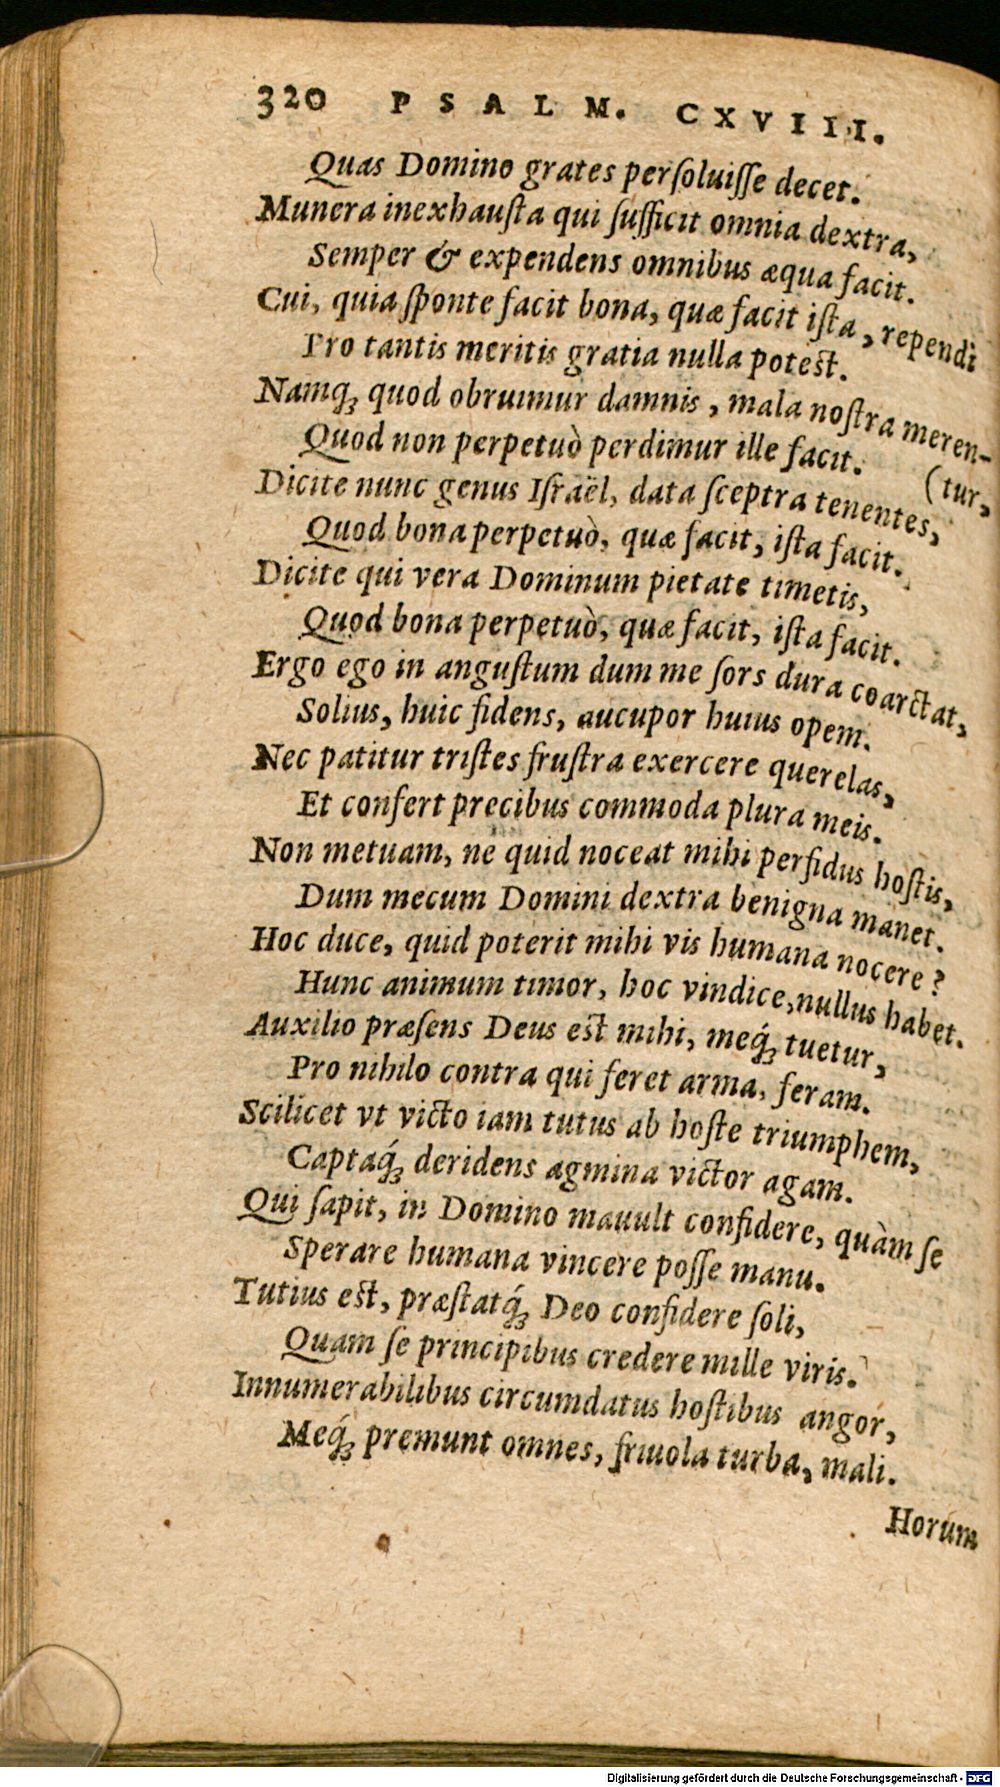 320 PSALM. CXVIII.
Quas Domino grates perſoluiſſe decet.
Munera inexhauſta qui ſufficit omnia dextra,
Semper & expendens omnibus æqua facit.
Cui, quia ſponte facit bona, quæ facit iſta, rependi
Pro tantis meritis gratia nulla poteſt.
Namq́; quod obruimur damnis, mala noſtra meren-
Quod non perpetuò perdimur ille facit. (tur,
Dicite nunc genus Iſraël, data ſceptra tenentes,
Quod bona perpetuò, quæ facit, iſta facit.
Dicite qui vera Dominum pietate timetis,
Quod bona perpetuò, quæ facit, iſta facit.
Ergo ego in anguſtum dum me ſors dura coarctat,
Solius, huic fidens, aucupor huius opem.
Nec patitur triſtes fruſtra exercere querelas,
Et confert precibus commoda plura meis.
Non metuam, ne quid noceat mihi perfidus hoſtis,
Dum mecum Domini dextra benigna manet.
Hoc duce, quid poterit mihi vis humana nocere?
Hunc animum timor, hoc vindice, nullus habet.
Auxilio præſens Deus eſt mihi, meq́; tuetur,
Pro nihilo contra qui feret arma, feram.
Scilicet vt victo iam tutus ab hoſte triumphem,
Captaq́; deridens agmina victor agam.
Qui ſapit, in Domino mauult confidere, quàm ſe
Sperare humana vincere poſſe manu.
Tutius eſt, præſtatq́; Deo confidere ſoli,
Quam ſe principibus credere mille viris.
Innumerabilibus circumdatus hoſtibus angor,
Meq́; premunt omnes, friuola turba, mali.
Horum
Digitalisierung gefördert durch die Deutsche Forschungsgemeinschaft - DFG